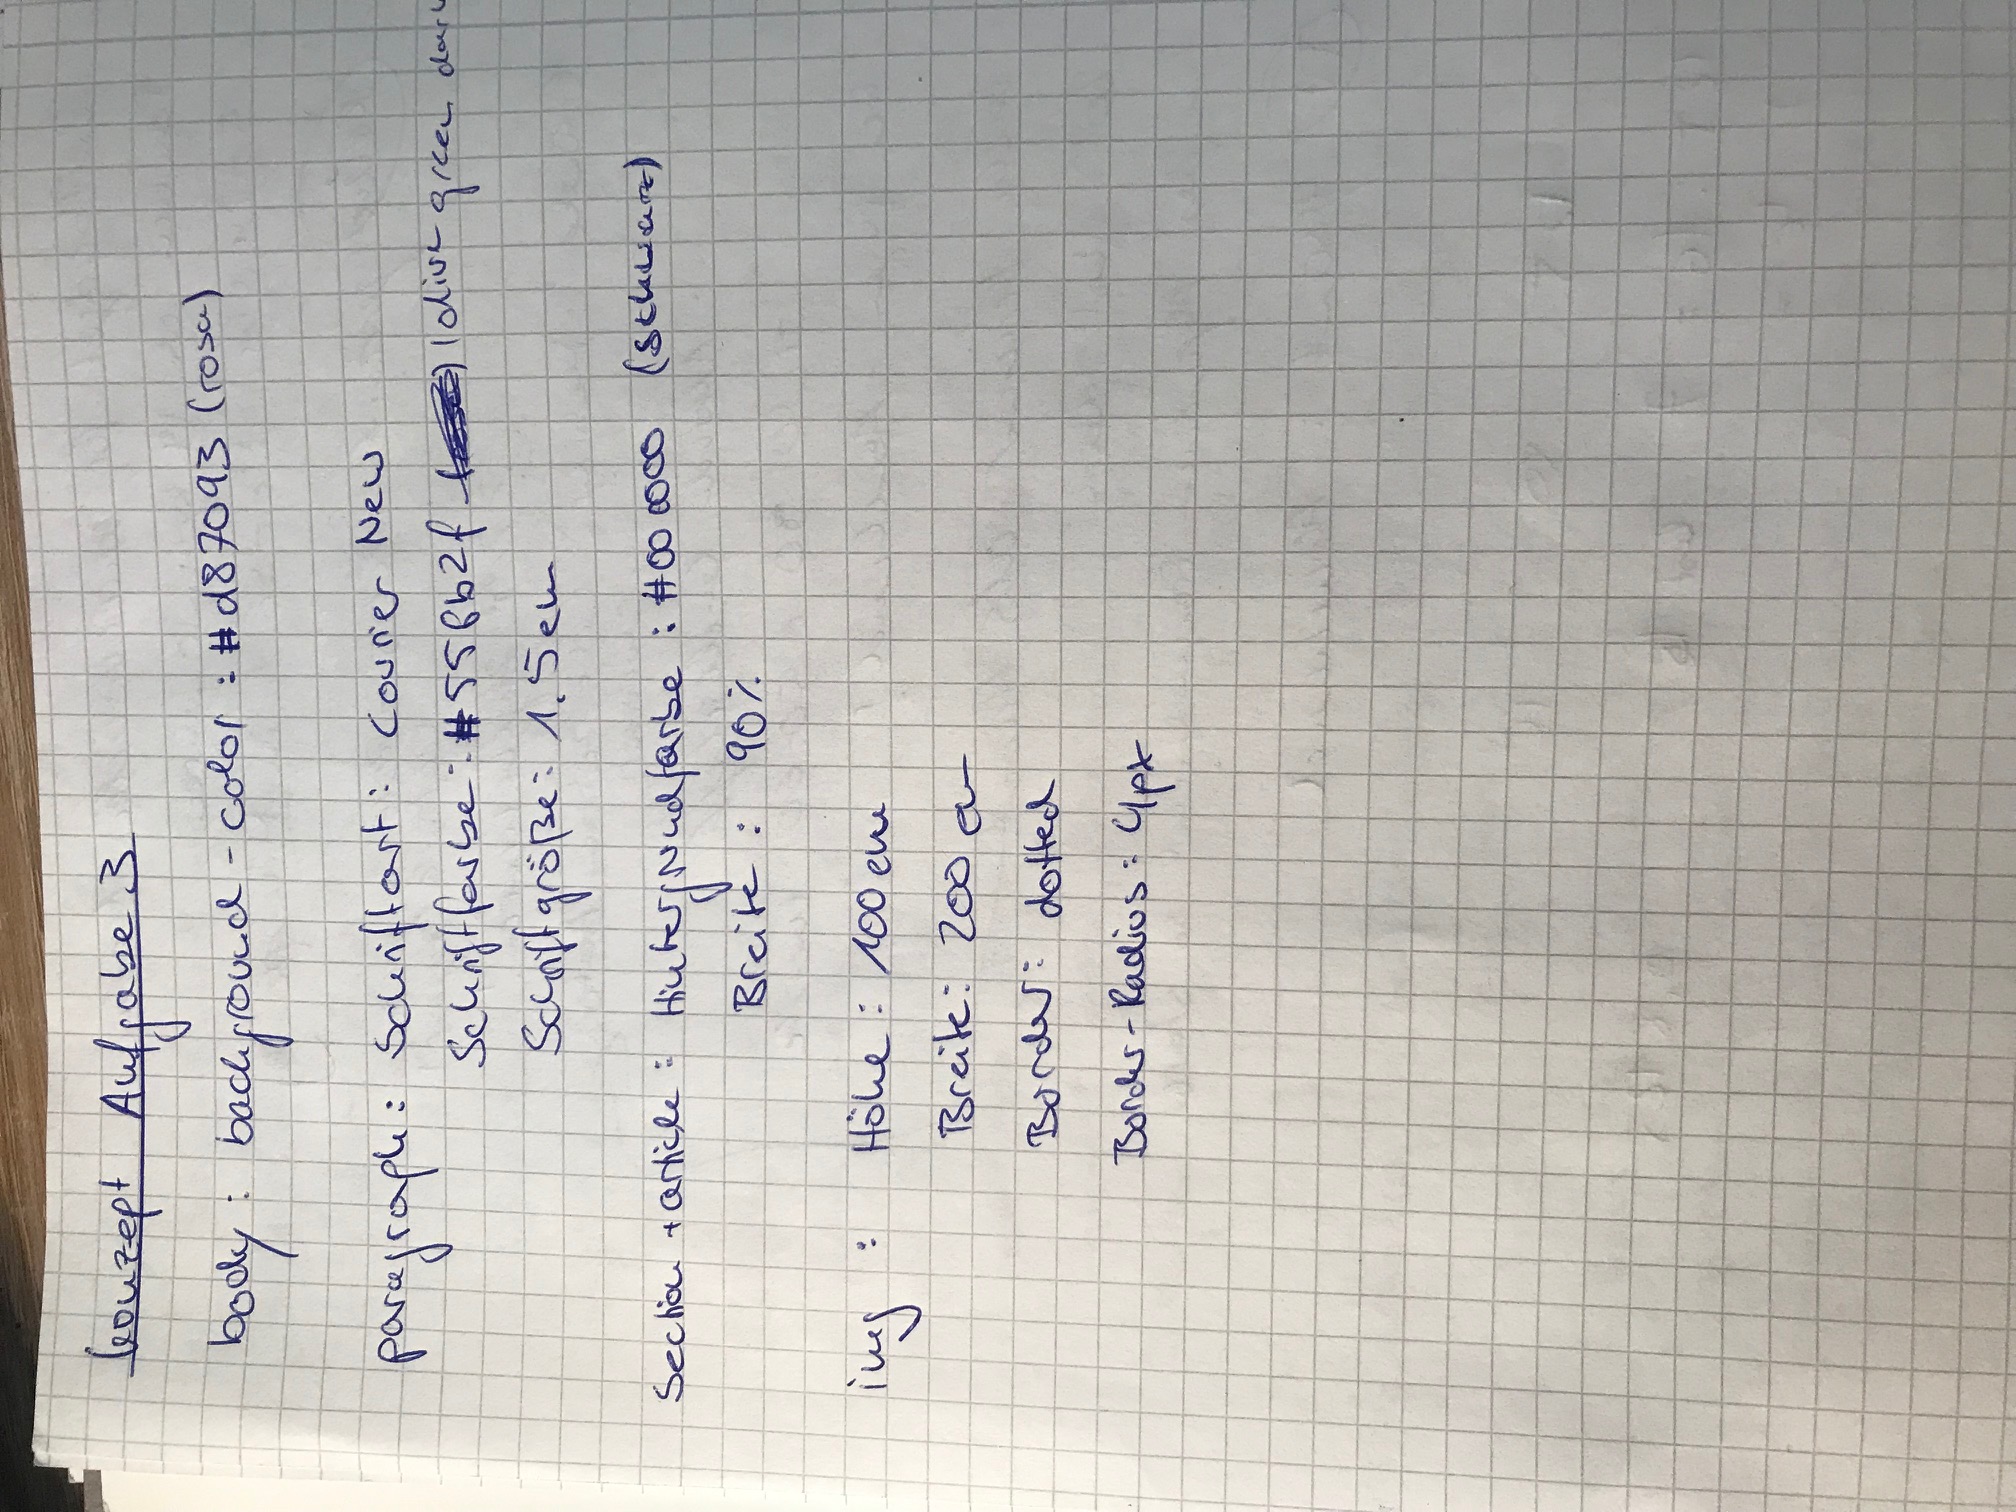 Konzept Aufgabe 3
body: background-color: #d87093 (rosa)
paragraph: Schriftart: Courier New
Schriftfarbe: #556b2f (olive green dark
Schriftgröße: 1.5em
Section + article: Hintergrundfarbe: #000000 (schwarz)
Breite: 90%
img: Höhe: 100em
Breite: 200
Border: dotted
Border-Radius: 4px